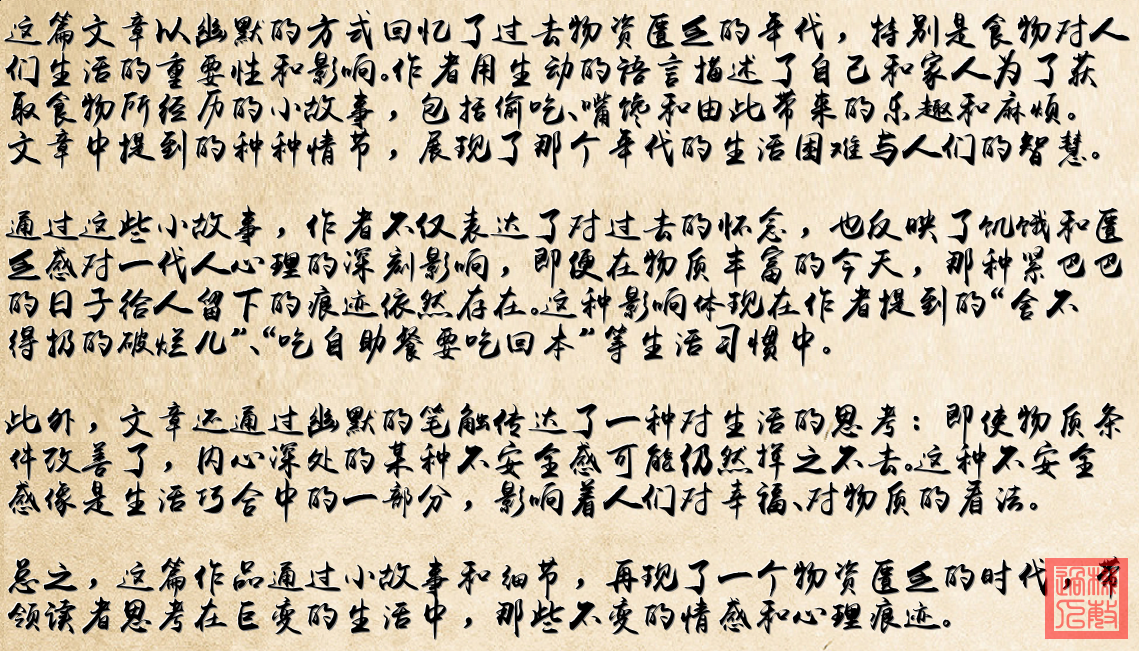 这篇文章以幽默的方式回忆了过去物资匮乏的年代，特别是食物对人
们生活的重要性和影响。作者用生动的语言描述了自己和家人为了获
取食物所经历的小故事，包括偷吃、嘴馋和由此带来的乐趣和麻烦。
文章中提到的种种情节，展现了那个年代的生活困难与人们的智慧。
通过这些小故事，作者不仅表达了对过去的怀念，也反映了饥饿和匮
乏感对一代人心理的深刻影响，即便在物质丰富的今天，那种紧巴巴
的日子给人留下的痕迹依然存在。这种影响体现在作者提到的“舍不
得扔的破烂儿”、“吃自助餐要吃回本”等生活习惯中。
此外，文章还通过幽默的笔触传达了一种对生活的思考：即使物质条
件改善了，内心深处的某种不安全感可能仍然挥之不去。这种不安全
感像是生活巧合中的一部分，影响着人们对幸福、对物质的看法。
总之，这篇作品通过小故事和细节，再现了一个物资匮乏的时代，带
领读者思考在巨变的生活中，那些不变的情感和心理痕迹。